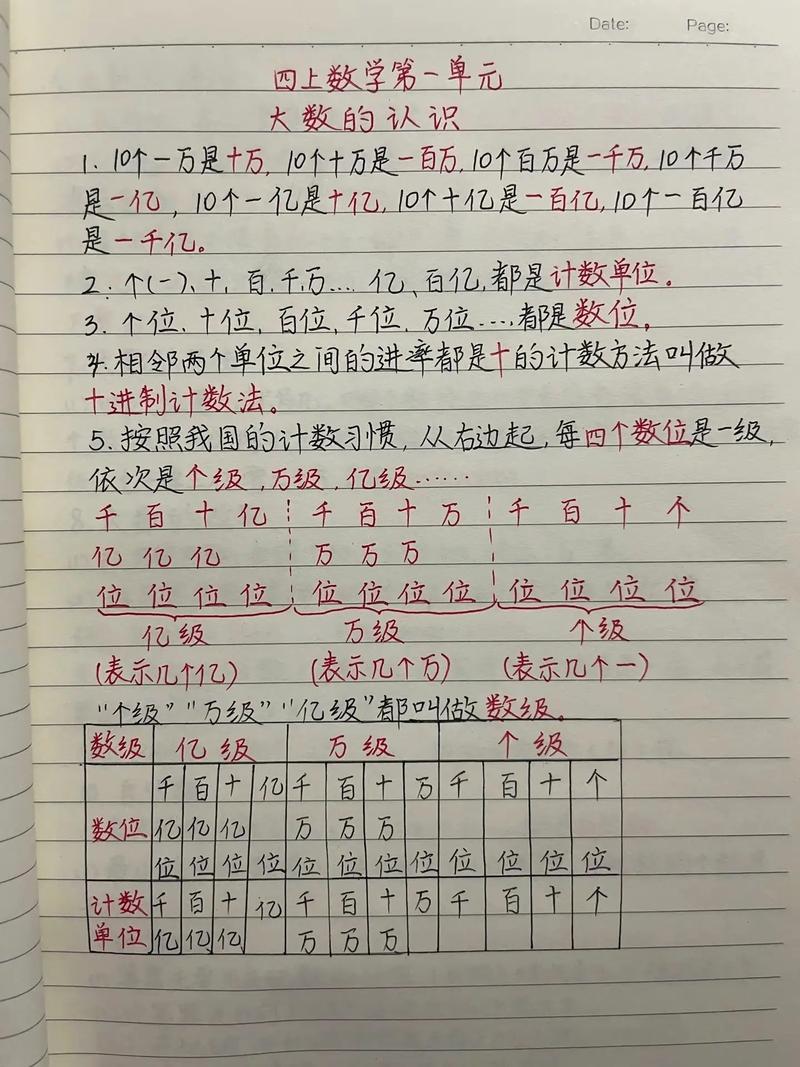 Date: Page:
四上数学第一单元
大数的认识
1. 10个一万是十万, 10个十万是一百万, 10个百万是一千万, 10个千万
是一亿, 10个一亿是十亿, 10个十亿是一百亿, 10个一百亿
是一千亿。
2. 个(一)、十、百、千、万.... 亿、百亿, 都是计数单位。
3. 个位、十位、百位、千位、万位....,都是数位。
4. 相邻两个单位之间的进率都是十的计数方法叫做
十进制计数法。
5. 按照我国的计数习惯, 从右边起, 每四个数位是一级,
依次是个级,万级,亿级……
千 百 十 亿 千 百 十 万 千 百 十 个
亿 亿 亿 万 万 万
位 位 位 位 位 位 位 位 位 位 位 位
亿级 万级 个级
(表示几个亿) (表示几个万) (表示几个一)
"个级" "万级" "亿级"都叫做数级。
数级 亿级 万级 个级
千 百 十 亿 千 百 十 万 千 百 十 个
数位 亿 亿 亿 万 万 万
位 位 位 位 位 位 位 位 位 位 位 位
计数 千 百 十 亿 千 百 十 万 千 百 十 个
单位 亿 亿 亿 万 万 万